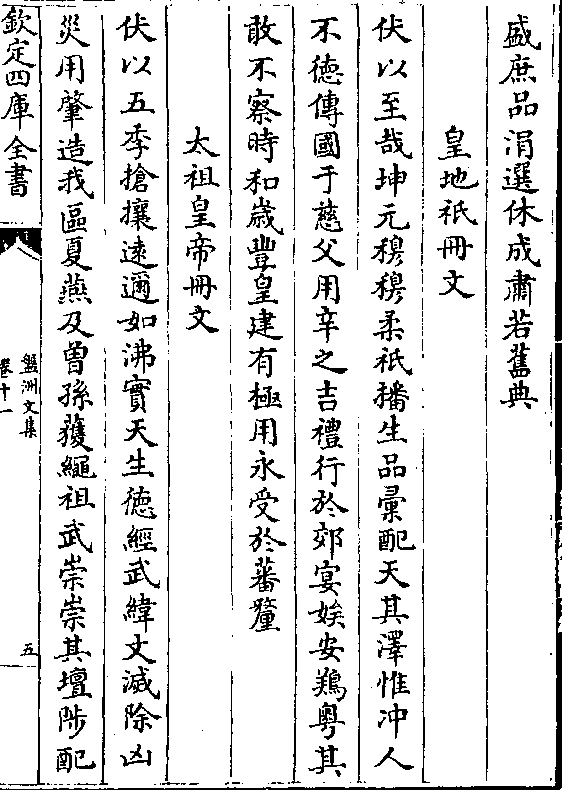 盛庶品涓選休成肅若舊典
皇地祇冊文
伏以至哉坤元穆穆柔祇播生品彚配天其澤惟冲人
不德傳國于慈父用辛之吉禮行於郊宴娭安鵷粤其
敢不察時和歲豐皇建有極用永受於蕃釐
太祖皇帝冊文
伏以五季搶攘逺邇如沸實天生徳經武緯文滅除凶
災用肇造我區夏燕及曽孫䕶繩祖武崇崇其壇陟配
欽定四庫全書
盤洲文集
卷十一
五